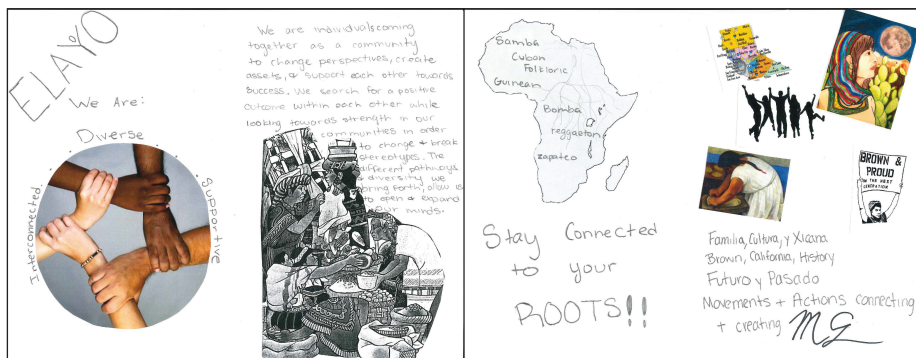 ELAYO
We Are:
Diverse
Interconnected
Supportive
We are individuals coming
together as a community
to change perspectives, create
assets, & support each other towards
success. We search for a positive
outcome within each other while
looking towards strength in our
communities in order
to change & break
stereotypes. The
different pathways
& diversity we
bring forth, allow us
to open & expand
our minds.
Samba
Cuban
Folkloric
Guinean
Bomba
reggaeton
zapateo
Stay Connected
to your
ROOTS!!
BROWN &
PROUD
FOR THE NEXT
GENERATION
Familia, Cultura, y Xicana
Brown, California, History
Futuro y Pasado
Movements + Actions connecting
+ creating MG